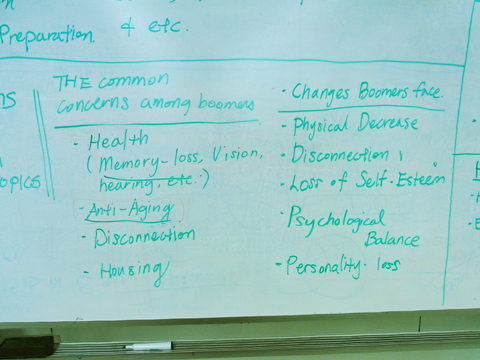 Preparation. & etc.
THE common
concerns among boomers
- Health
( Memory-loss, Vision,
hearing, etc..)
- Anti-Aging
- Disconnection
- Housing
• Changes Boomers face.
- Physical Decrease
- Disconnection
- Loss of Self-Esteem
- Psychological
Balance
- Personality-loss